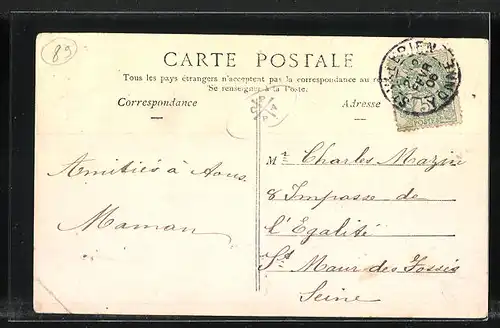 89
CARTE POSTALE
Tous les pays étrangers n'acceptent pas la correspondance au
Se renseigner à la Poste.
Correspondance
Adresse
ST VALÉRIEN
YONNE
06
Mr Charles Mazin
8 Impasse de
l'Égalité
St Maur des Fossés
Seine
Amitiés à tous.
Maman